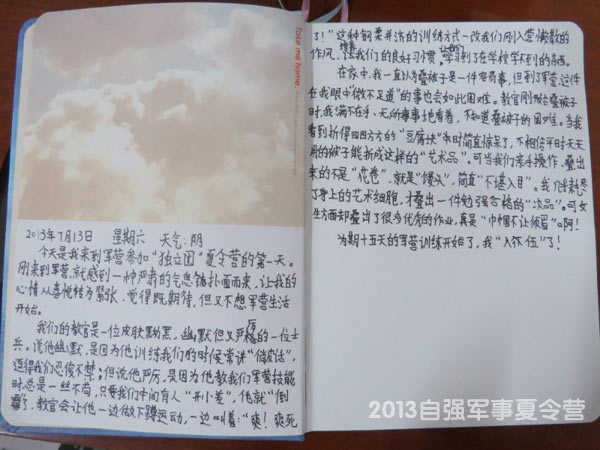 Take me home.
2013年7月13日 星期六 天气:阴
今天是我来到军营参加“独立团”夏令营的第一天。
刚来到军营,就感到一种严肃的气息铺扑面而来,让我的
心情从喜悦转为紧张,觉得既期待,但又不想军营生活
开始。
我们的教官是一位皮肤黝黑,幽默但又严厉的一位士
兵。说他幽默,是因为他训练我们的时候常讲“俏皮话”,
逗得我们忍俊不禁;但说他严厉,是因为他教我们军营技能
时总是一丝不苟,只要我们中间有人“开小差”,他就“倒
霉”了,教官会让他一边做下蹲运动,一边叫着:“爽!爽死
了!”这种钢柔并济的训练方式一改我们刚入营懒散的
作风,让我们的良好习惯,学习到了在学校学不到的东西。
在家中,我一直以为叠被子是一件容易事,但到了军营,这件
在我眼中“微不足道”的事也会如此困难。教官刚开始叠被子
时,我满不在乎、无所事事地看着,不知道叠被子的困难。当我
看到折得四四方方的“豆腐块”时简直惊呆了,不相信平时天天
用的被子能折成这样的“艺术品”。可当我们亲手操作,叠出
来的不是“花卷”,就是“馒头”,简直“不堪入目”。我几乎耗尽
了身上的艺术细胞,才叠出一件勉强合格的“次品”。可女
生方面却叠出了很多优秀的作业,真是“巾帼不让须眉”啊!
为期十五天的军营训练开始了,我“入伍”了!
2013自强军事夏令营